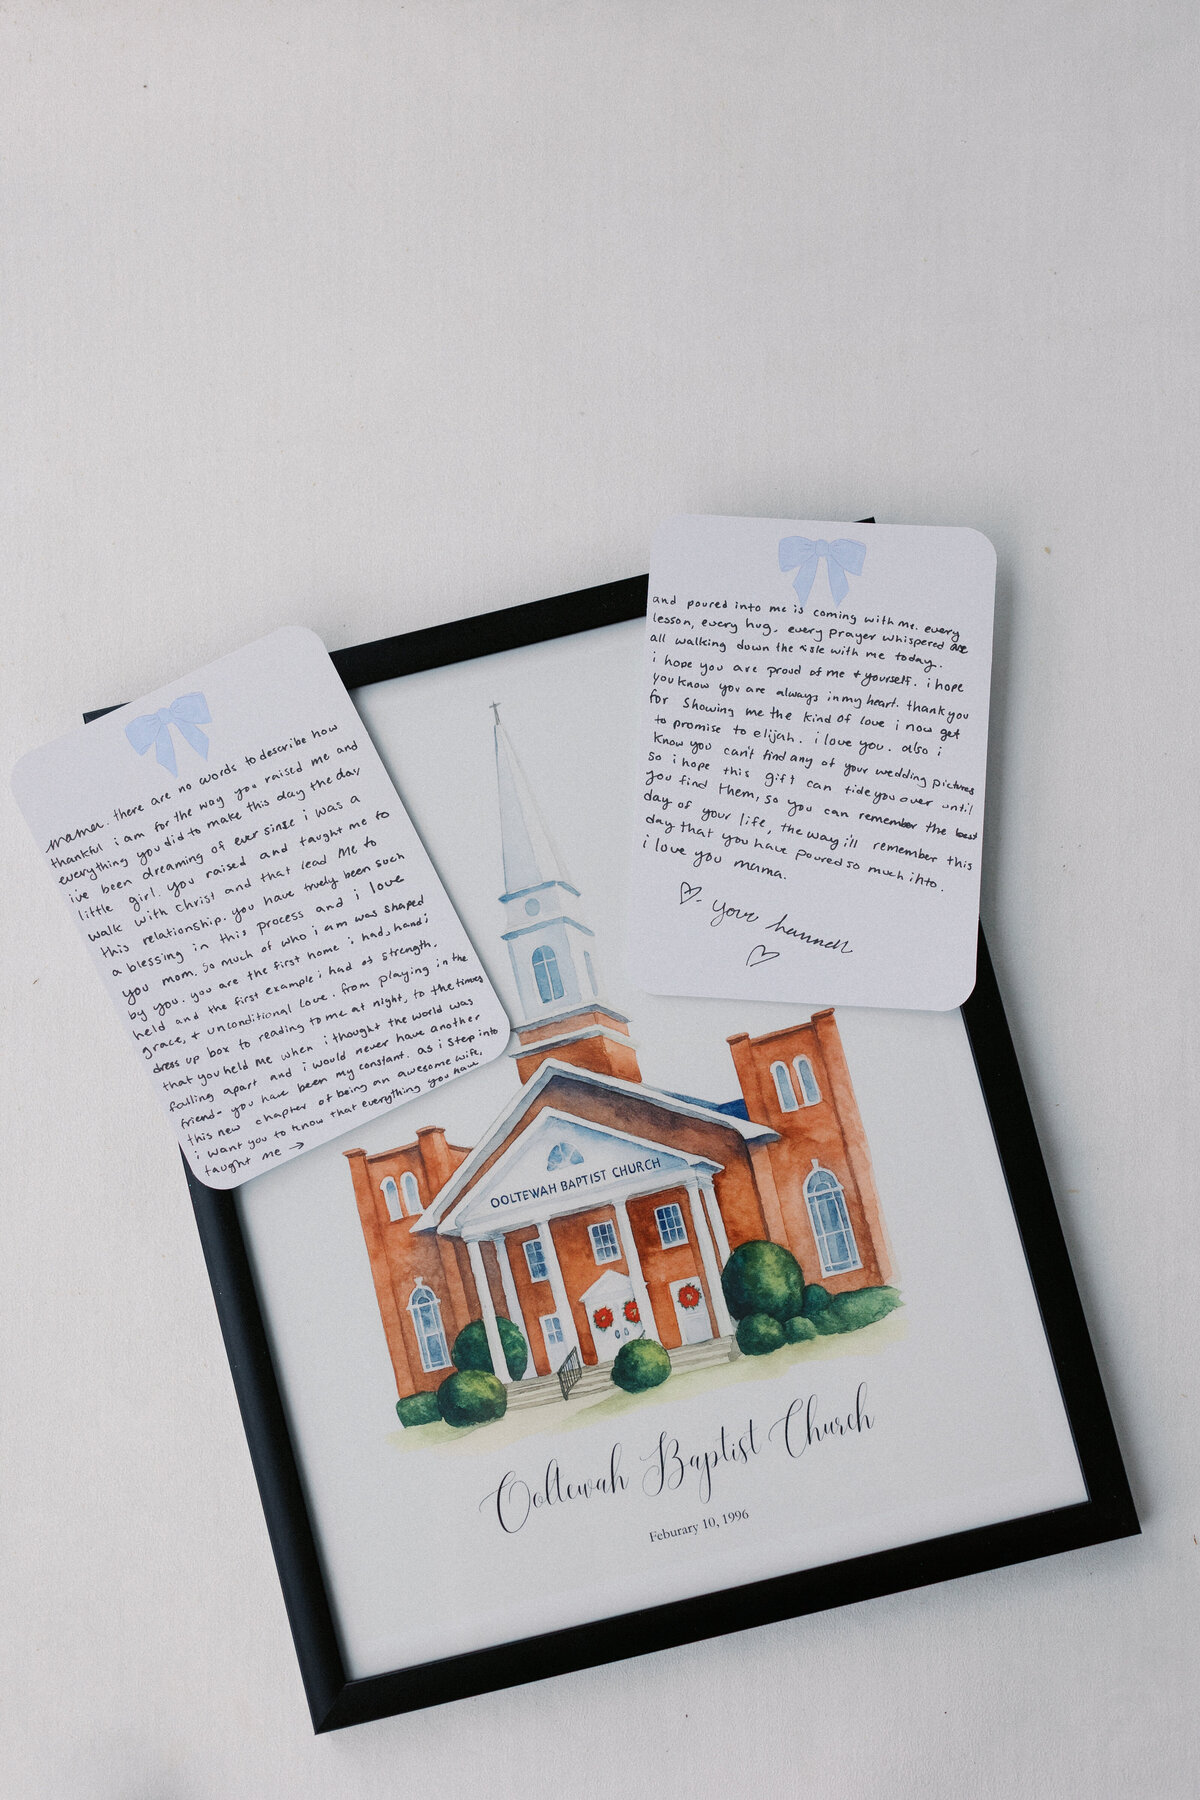 mama. there are no words to describe how
thankful i am for the way you raised me and
everything you did to make this day the day
ive been dreaming of ever sinse i was a
little girl. you raised and taught me to
walk with Christ and that lead me to
this relationship. you have truely been such
a blessing in this process and i love
you mom. so much of who i am was shaped
by you. you are the first home i had, hand i
held and the first example i had of strength,
grace, + unconditional love. from playing in the
dress up box to reading to me at night, to the times
that you held me when i thought the world was
falling apart and i would never have another
friend- you have been my constant. as i step into
this new chapter of being an awesome wife,
i want you to know that everything you have
taught me →
and poured into me is coming with me. every
lesson, every hug, every prayer whispered are
all walking down the isle with me today.
i hope you are proud of me + yourself. i hope
you know you are always in my heart. thank you
for showing me the kind of love i now get
to promise to elijah. i love you. also i
know you can't find any of your wedding pictures
so i hope this gift can tide you over until
you find them, so you can remember the best
day of your life, the way i'll remember this
day that you have poured so much into.
i love you mama.
♡- your hannah
♡
OOLTEWAH BAPTIST CHURCH
Ooltewah Baptist Church
Feburary 10, 1996